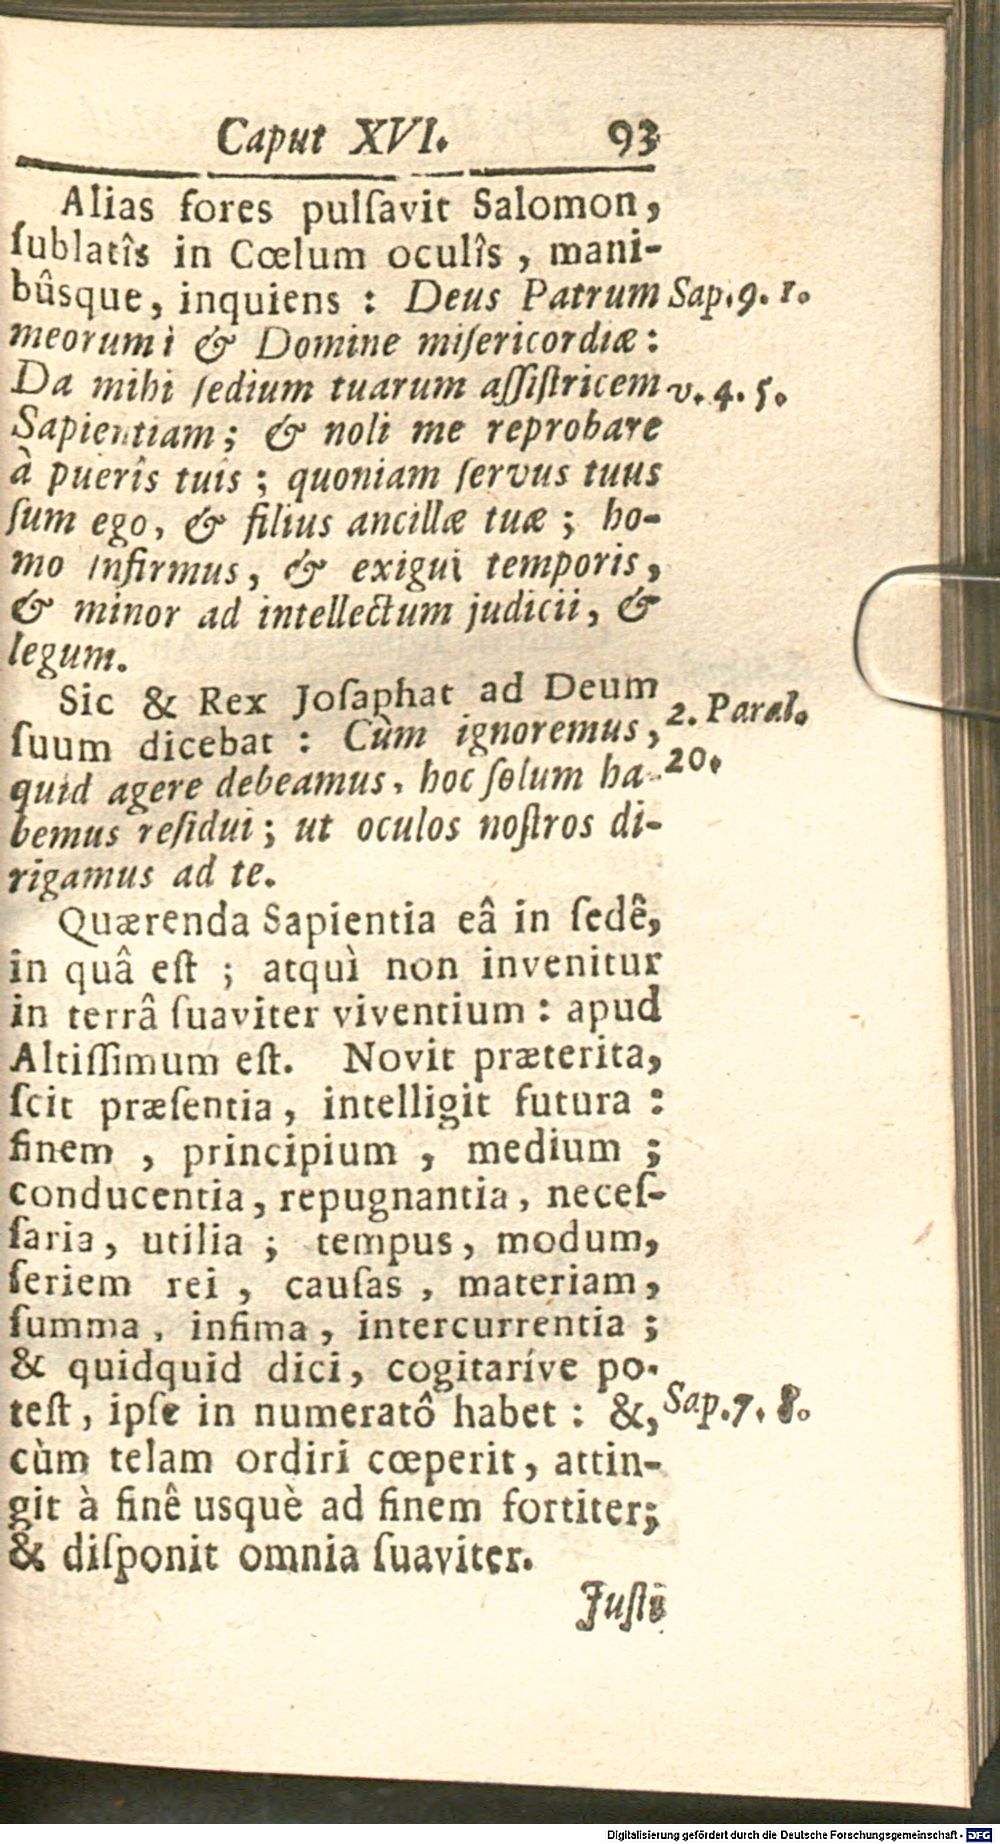 Caput XVI. 93
Alias fores pulſavit Salomon,
ſublatîs in Cœlum oculîs, mani-
bûsque, inquiens : Deus Patrum Sap. 9. 1.
meorum ! & Domine miſericordiæ :
Da mihi ſedium tuarum aſſiſtricem v. 4. 5.
Sapientiam ; & noli me reprobare
à pueris tuis ; quoniam ſervus tuus
ſum ego, & filius ancillæ tuæ ; ho-
mo infirmus, & exigui temporis,
& minor ad intellectum judicii, &
legum.
Sic & Rex Joſaphat ad Deum
ſuum dicebat : Cùm ignoremus, 2. Paral.
quid agere debeamus, hoc ſolum ha- 20.
bemus reſidui ; ut oculos noſtros di-
rigamus ad te.
Quærenda Sapientia eâ in ſedê,
in quâ eſt ; atquì non invenitur
in terrâ ſuaviter viventium : apud
Altiſſimum eſt. Novit præterita,
ſcit præſentia, intelligit futura :
finem , principium , medium ;
conducentia, repugnantia, neceſ-
ſaria, utilia ; tempus, modum,
ſeriem rei , cauſas , materiam,
ſumma , infima, intercurrentia ;
& quidquid dici, cogitaríve po-
teſt, ipſe in numeratô habet : &, Sap. 7. 8.
cùm telam ordiri cœperit, attin-
git à finê usquè ad finem fortiter;
& diſponit omnia ſuaviter.
Juſtè
Digitalisierung gefördert durch die Deutsche Forschungsgemeinschaft - DFG